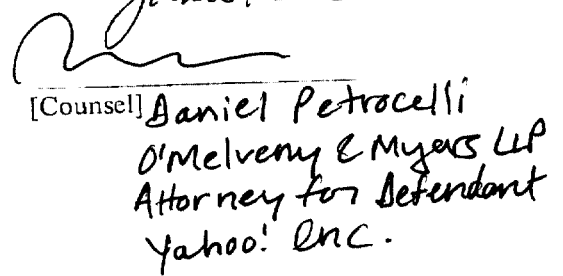 [Counsel] Daniel Petrocelli
O'Melveny & Myers LLP
Attorney for Defendant
Yahoo! Inc.